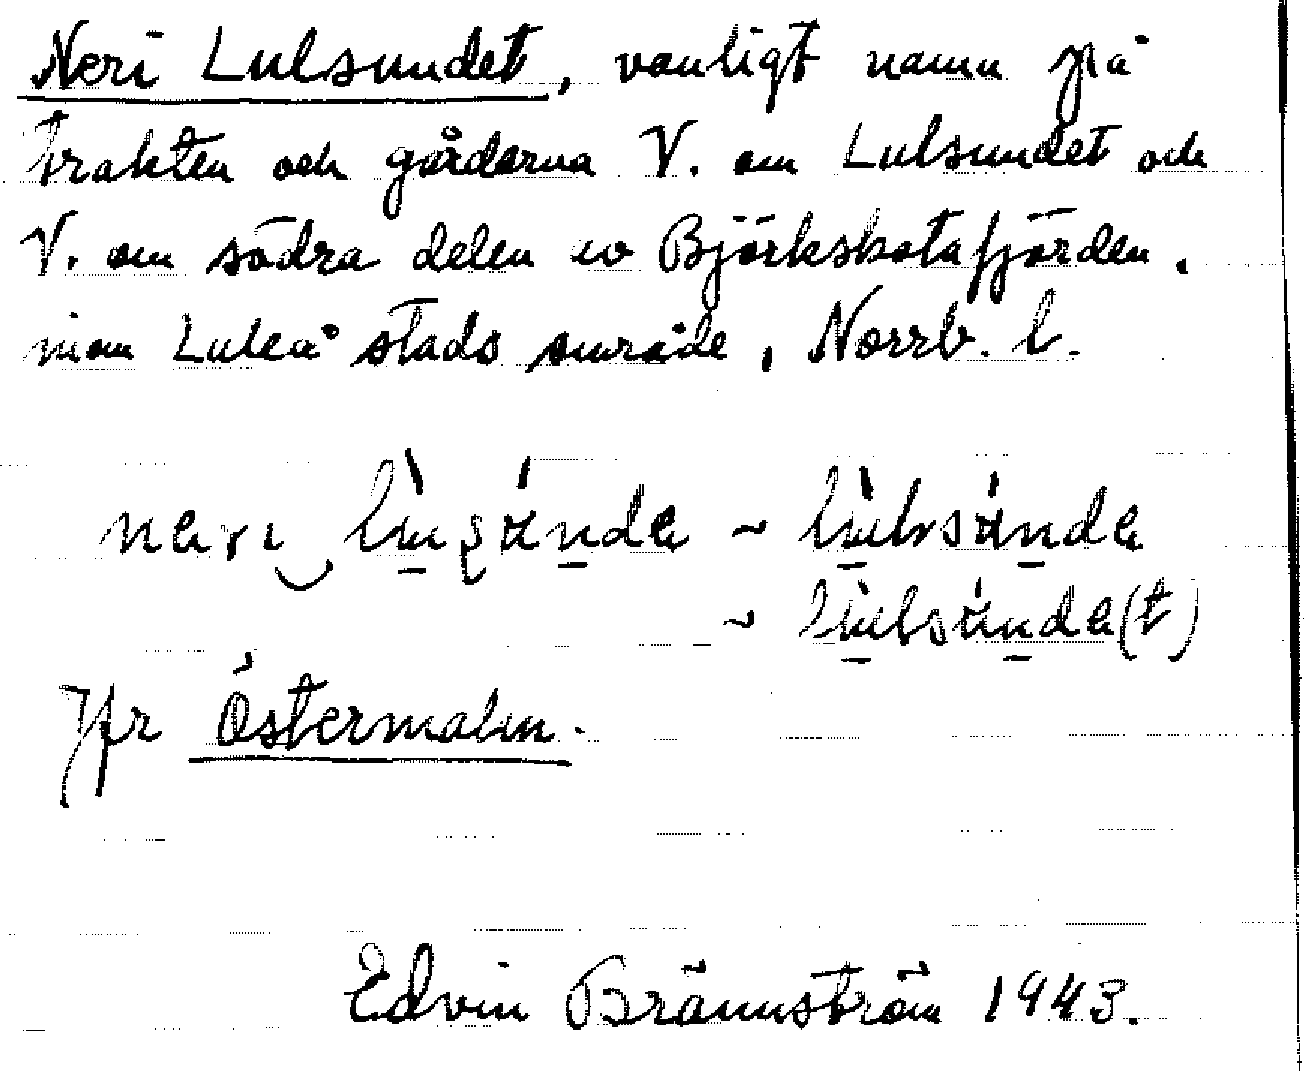 Neri Lulsundet, vanligt namn på
trakten och gårdarna V. om Lulsundet och
V. om södra delen av Björkskatafjärden,
inom Luleå stads område, Norrb. l.
neri
Jfr Östermalm.
Edvin Brännström 1943.